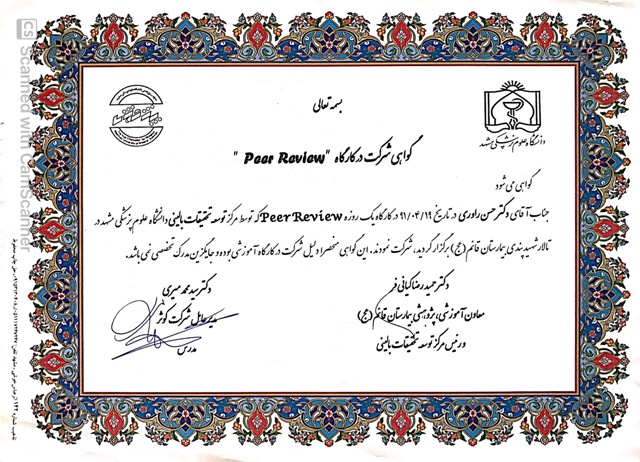 بسمه تعالی
دانشگاه علوم پزشکی مشهد
گواهی شرکت در کارگاه "Peer Review"
گواهی می شود
جناب آقای دکتر حسن راوری در تاریخ ۹۱/۰۴/۱۹ در کارگاه یک روزه Peer Review که توسط مرکز توسعه تحقیقات بالینی دانشگاه علوم پزشکی مشهد در
تالار شهید پندی بیمارستان قائم (عج) برگزار گردید، شرکت نمودند. این گواهی منحصرا دلیل شرکت در کارگاه آموزشی بوده و جایگزین مدرک تخصصی نمی باشد.
دکتر حمیدرضا کیانی فر
معاون آموزشی، پژوهشی بیمارستان قائم (عج)
و رئیس مرکز توسعه تحقیقات بالینی
دکتر سید محمد میری
مدیر عامل شرکت کوثر
مدرس
CS Scanned with CamScanner